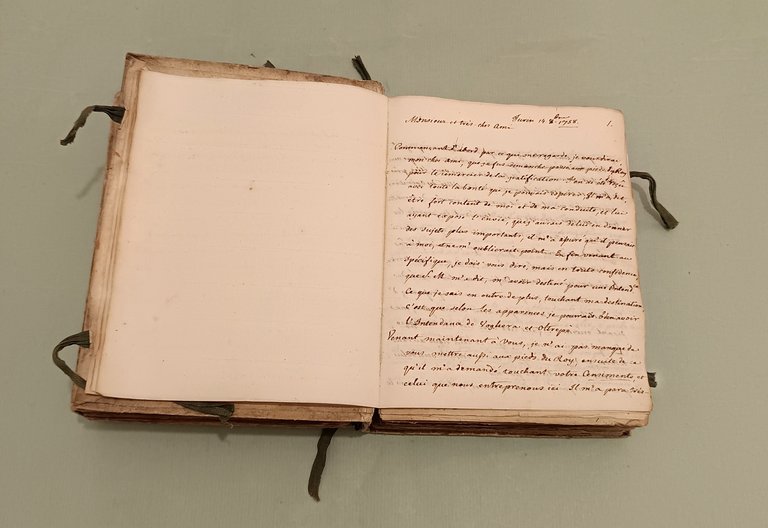 Monsieur et très cher Ami
Turin 14 8bre 1758.
1.
Commençant d'abord par ce que me regarde, je vous dirai
mon cher Ami, que je fus dimanche passé aux pieds du Roy
pour le remercier de la gratification. J'en ai été reçu
avec toute la bonté que je pouvais espérer. Il m'a dit,
être fort content de moi et de ma conduite, et lui
ayant exposé l'envie, que j'aurais de lui en donner
des sujets plus importants, il m'a assuré qu'il pensait
à moi, et ne m'oublierait point. En fin venant au
spécifique, je dois vous dire, mais en toute confidence,
que S. M. m'a dit, m'avoir destiné pour une Intend.ce
Ce que je sais en outre de plus, touchant ma destination
c'est que selon les apparences je pourrais bien avoir
l'Intendance de Voghera et Oltrepò
Venant maintenant à Vous, je n'ai pas manqué de
vous mettre aussi aux pieds du Roy, ensuite de ce
qu'il m'a demandé touchant votre Censimento, et
celui que nous entreprenons ici. Il m'a paru très